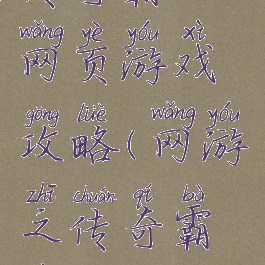 wǎng yè yóu xì
网页游戏
gōng lüè wǎng yóu
攻略(网游
zhī chuán qí bà
之传奇霸